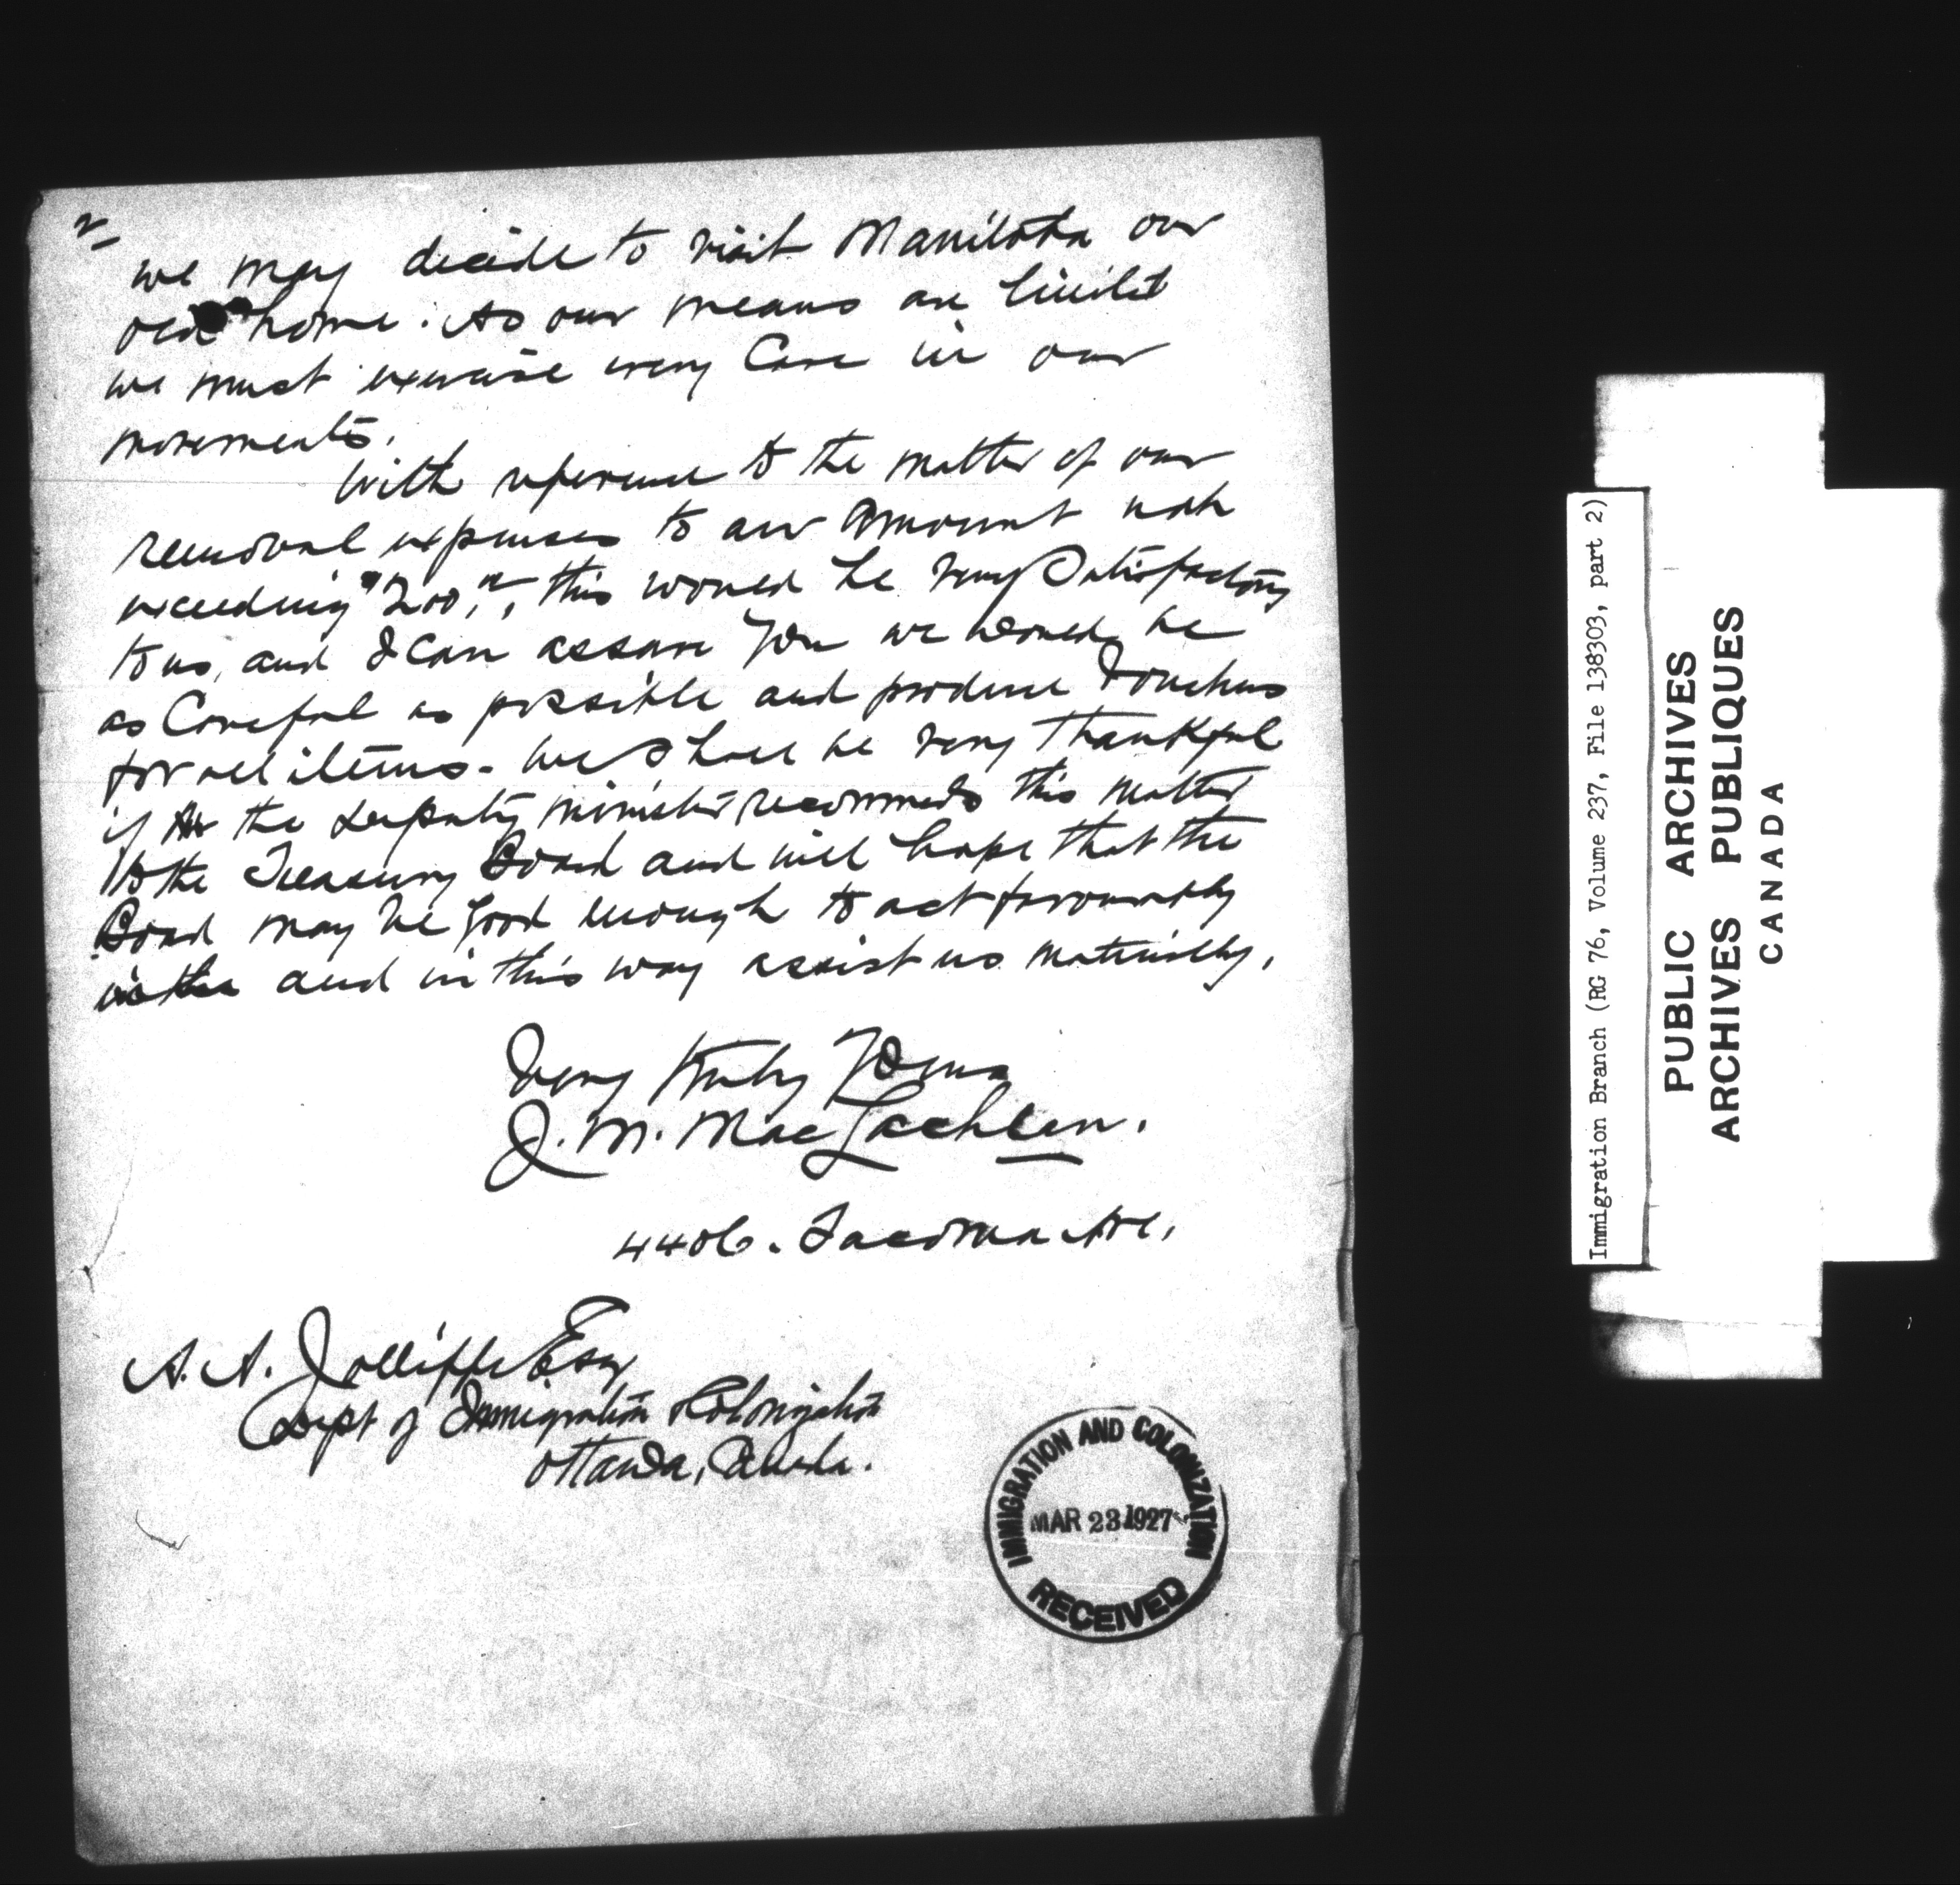 2
we may decide to visit Manitoba our
old home. As our means are limited
we must exercise every Care in our
movements.
With reference to the matter of our
removal expenses to an amount not
exceeding $200, this would be very Satisfactory
to us, and I can assure you we would be
as Careful as possible and produce Vouchers
for all items. We shall be very thankful
if the deputy minister recommends this matter
to the Treasury Board and will hope that the
Board may be good enough to act favourably
and in this way assist us materially.
Very truly Yours
J. M. MacLachlan.
4406. Tacoma Ave,
A. A. Jolliffe Esq
Dept of Immigration & Colonization
Ottawa, Canada.
IMMIGRATION AND COLONIZATION
MAR 23 1927
RECEIVED
Immigration Branch (RG 76, Volume 237, File 138303, part 2)
PUBLIC ARCHIVES
ARCHIVES PUBLIQUES
CANADA